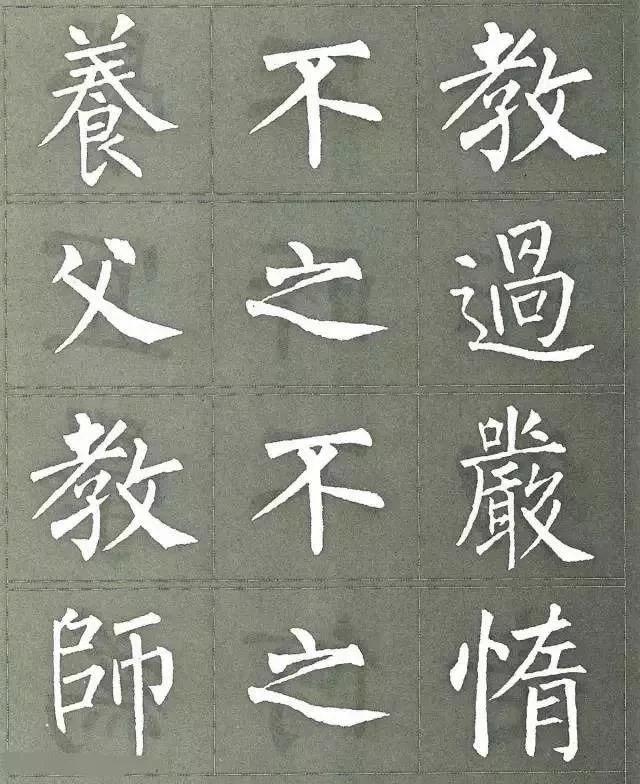 養不教
父之過
教不嚴
師之惰